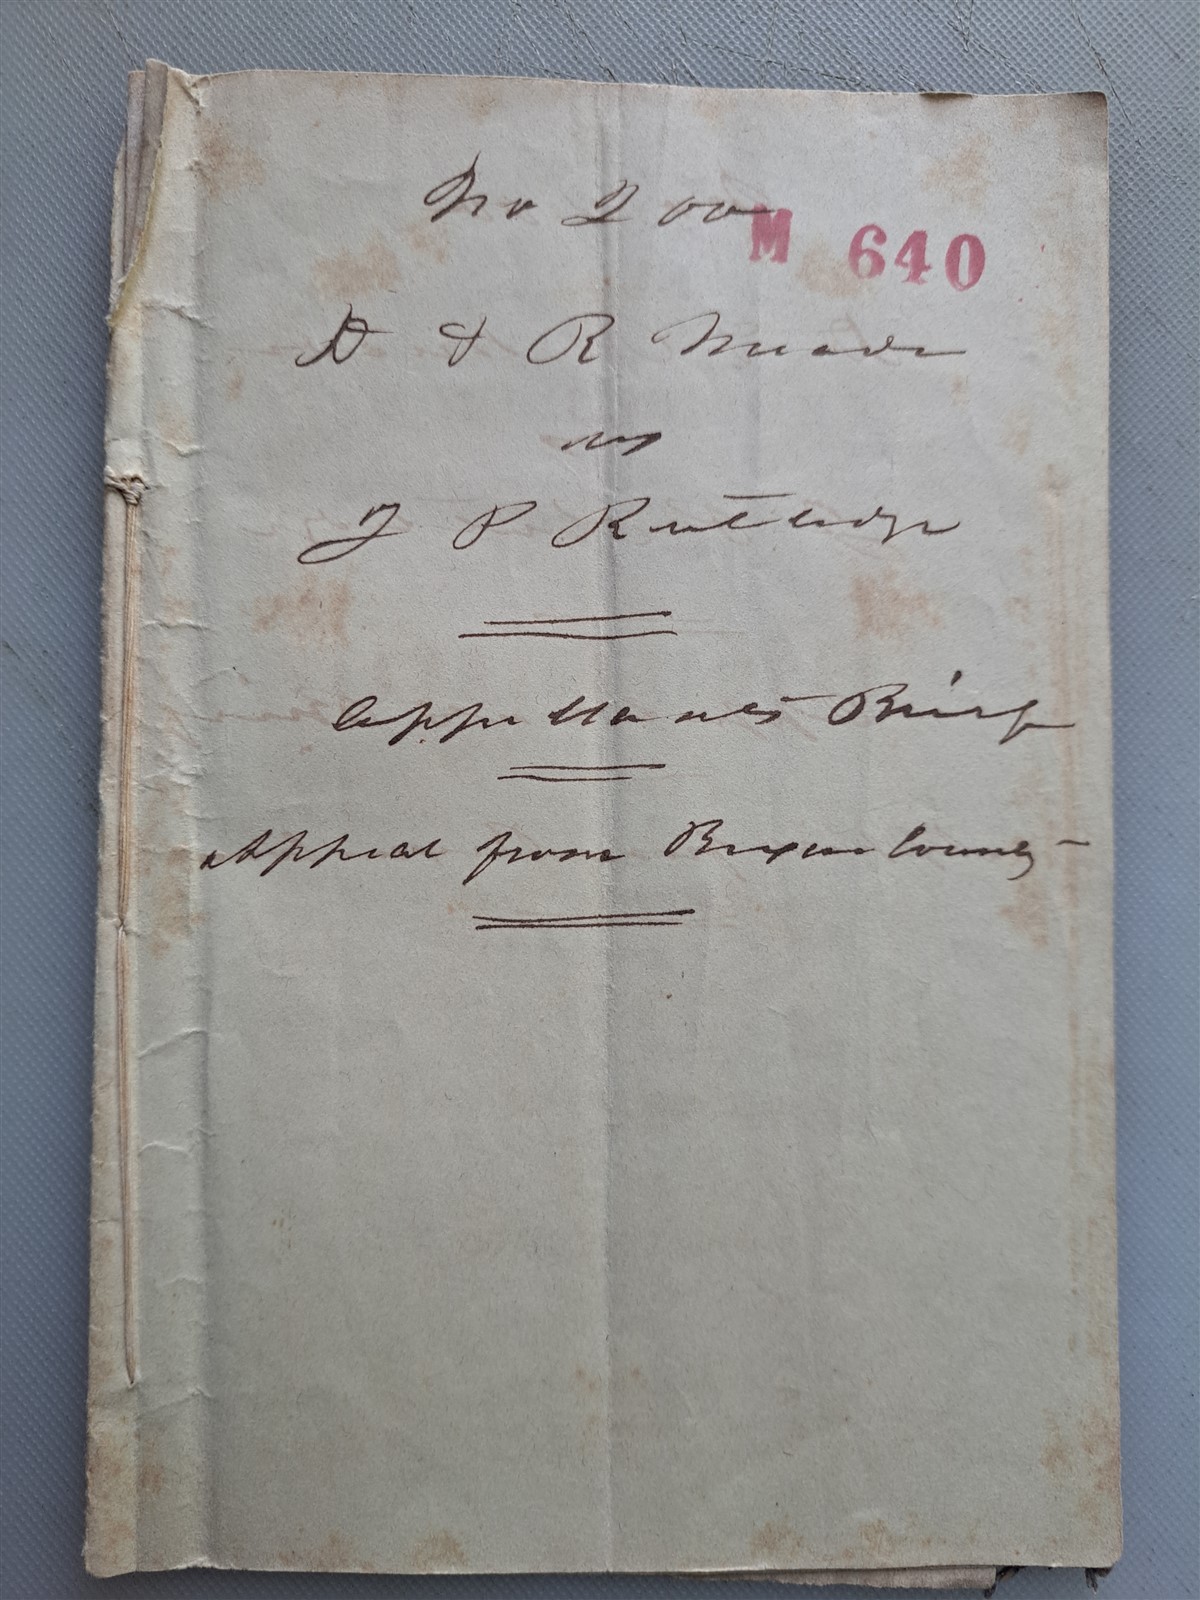 No 200
M 640
D & R Meade
vs
J P Rutledge
Appellants Brief
Appeal from Bexar County